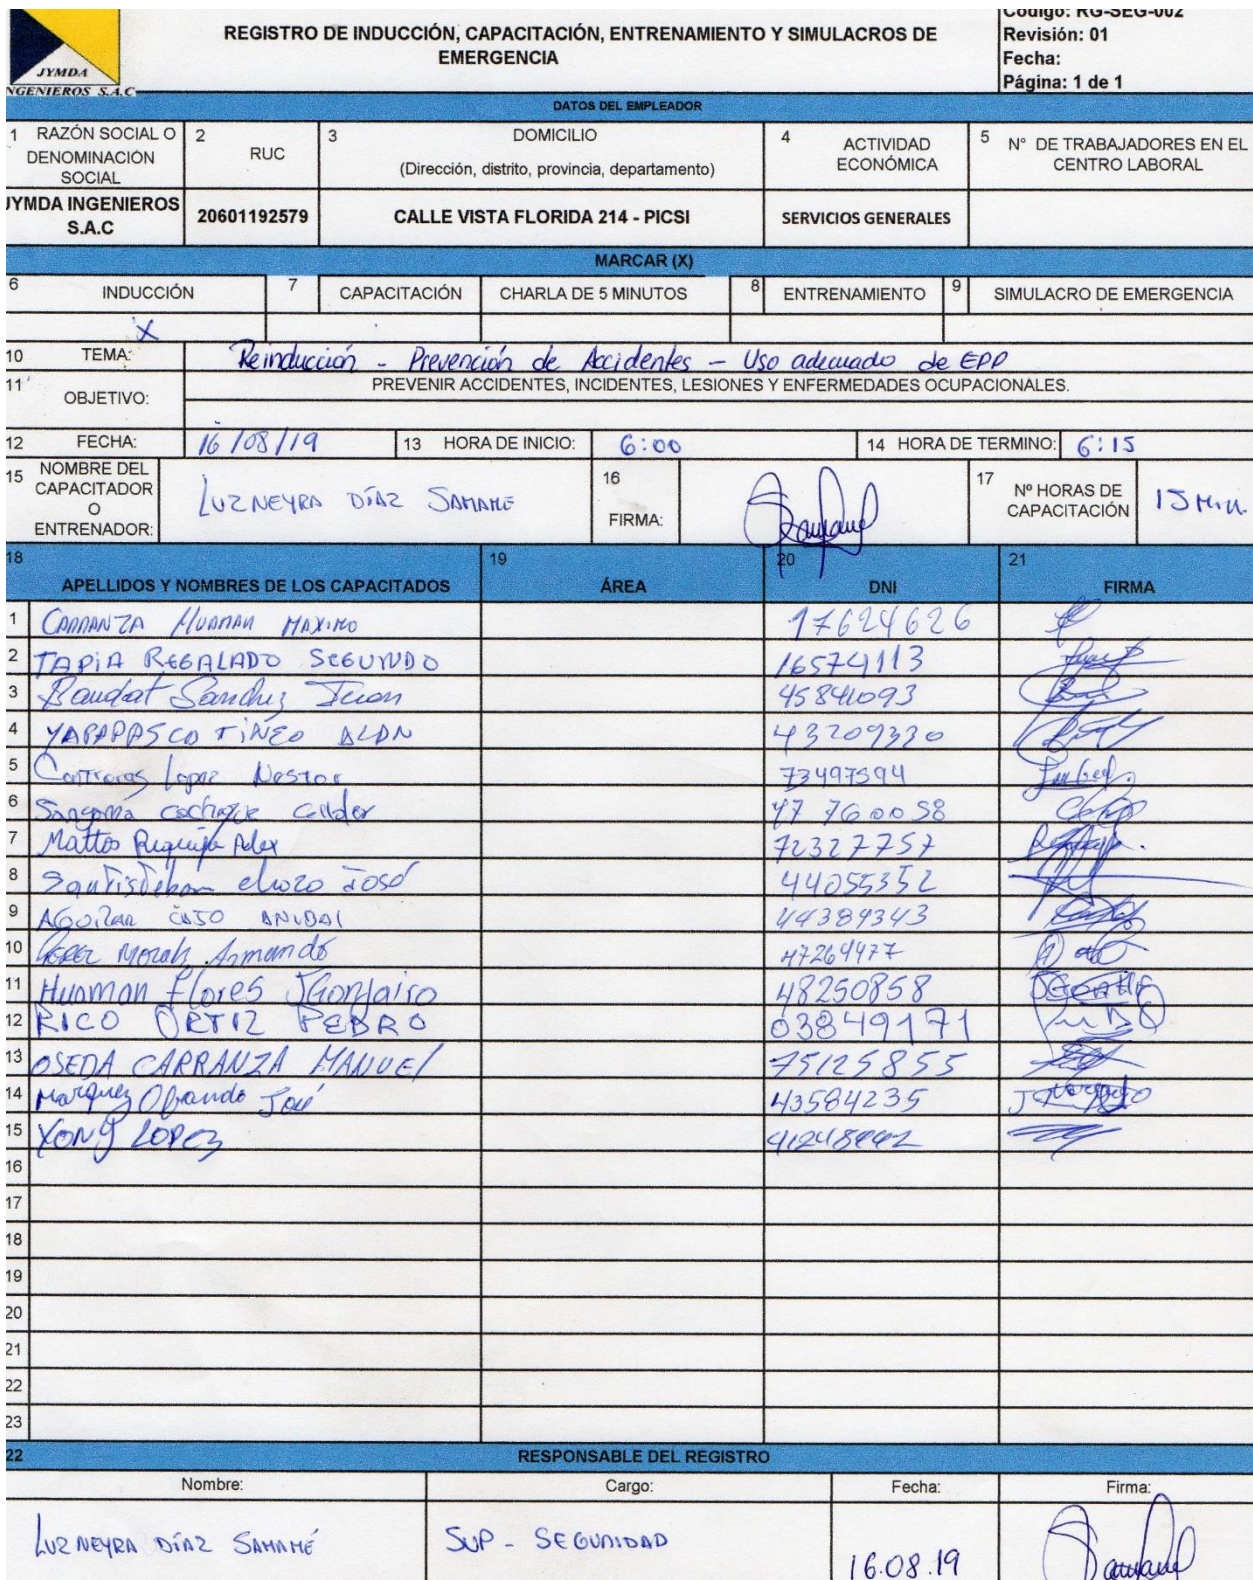 JYMDA
INGENIEROS S.A.C
REGISTRO DE INDUCCIÓN, CAPACITACIÓN, ENTRENAMIENTO Y SIMULACROS DE
EMERGENCIA
Código: RG-SEG-002
Revisión: 01
Fecha:
Página: 1 de 1
DATOS DEL EMPLEADOR
1 RAZÓN SOCIAL O DENOMINACIÓN SOCIAL
2 RUC
3 DOMICILIO
(Dirección, distrito, provincia, departamento)
4 ACTIVIDAD ECONÓMICA
5 N° DE TRABAJADORES EN EL CENTRO LABORAL
JYMDA INGENIEROS S.A.C
20601192579
CALLE VISTA FLORIDA 214 - PICSI
SERVICIOS GENERALES
MARCAR (X)
6 INDUCCIÓN 7 CAPACITACIÓN CHARLA DE 5 MINUTOS 8 ENTRENAMIENTO 9 SIMULACRO DE EMERGENCIA
X
10 TEMA: Reinducción - Prevención de Accidentes - Uso adecuado de EPP
11 OBJETIVO: PREVENIR ACCIDENTES, INCIDENTES, LESIONES Y ENFERMEDADES OCUPACIONALES.
12 FECHA: 16/08/19 13 HORA DE INICIO: 6:00 14 HORA DE TERMINO: 6:15
15 NOMBRE DEL CAPACITADOR O ENTRENADOR: LUZ NEYRA DÍAZ SAMAME 16 FIRMA: 17 Nº HORAS DE CAPACITACIÓN 15 Min.
18 APELLIDOS Y NOMBRES DE LOS CAPACITADOS 19 ÁREA 20 DNI 21 FIRMA
1 CARRANZA HUAMAN MAXIMO 17624626
2 TAPIA REGALADO SEGUNDO 16574113
3 Sanchez Juan 45841093
4 TINEO ALAN 43209330
5 Contreras Lopez Nestor 73497594
6 47760058
7 Mattos Alex 72327757
8 Santisteban chozo José 44055352
9 AGUILAR CAJO ANIBAL 44384343
10 Armando 47264477
11 Huaman Flores JGonjairo 48250858
12 RICO ORTIZ PEDRO 03849171
13 OSEDA CARRANZA MANUEL 75125855
14 Marquez Obando José 43584235
15 YONY LOPEZ
16
17
18
19
20
21
22
23
22 RESPONSABLE DEL REGISTRO
Nombre: Cargo: Fecha: Firma:
LUZ NEYRA DÍAZ SAMAMÉ SUP - SEGURIDAD 16.08.19